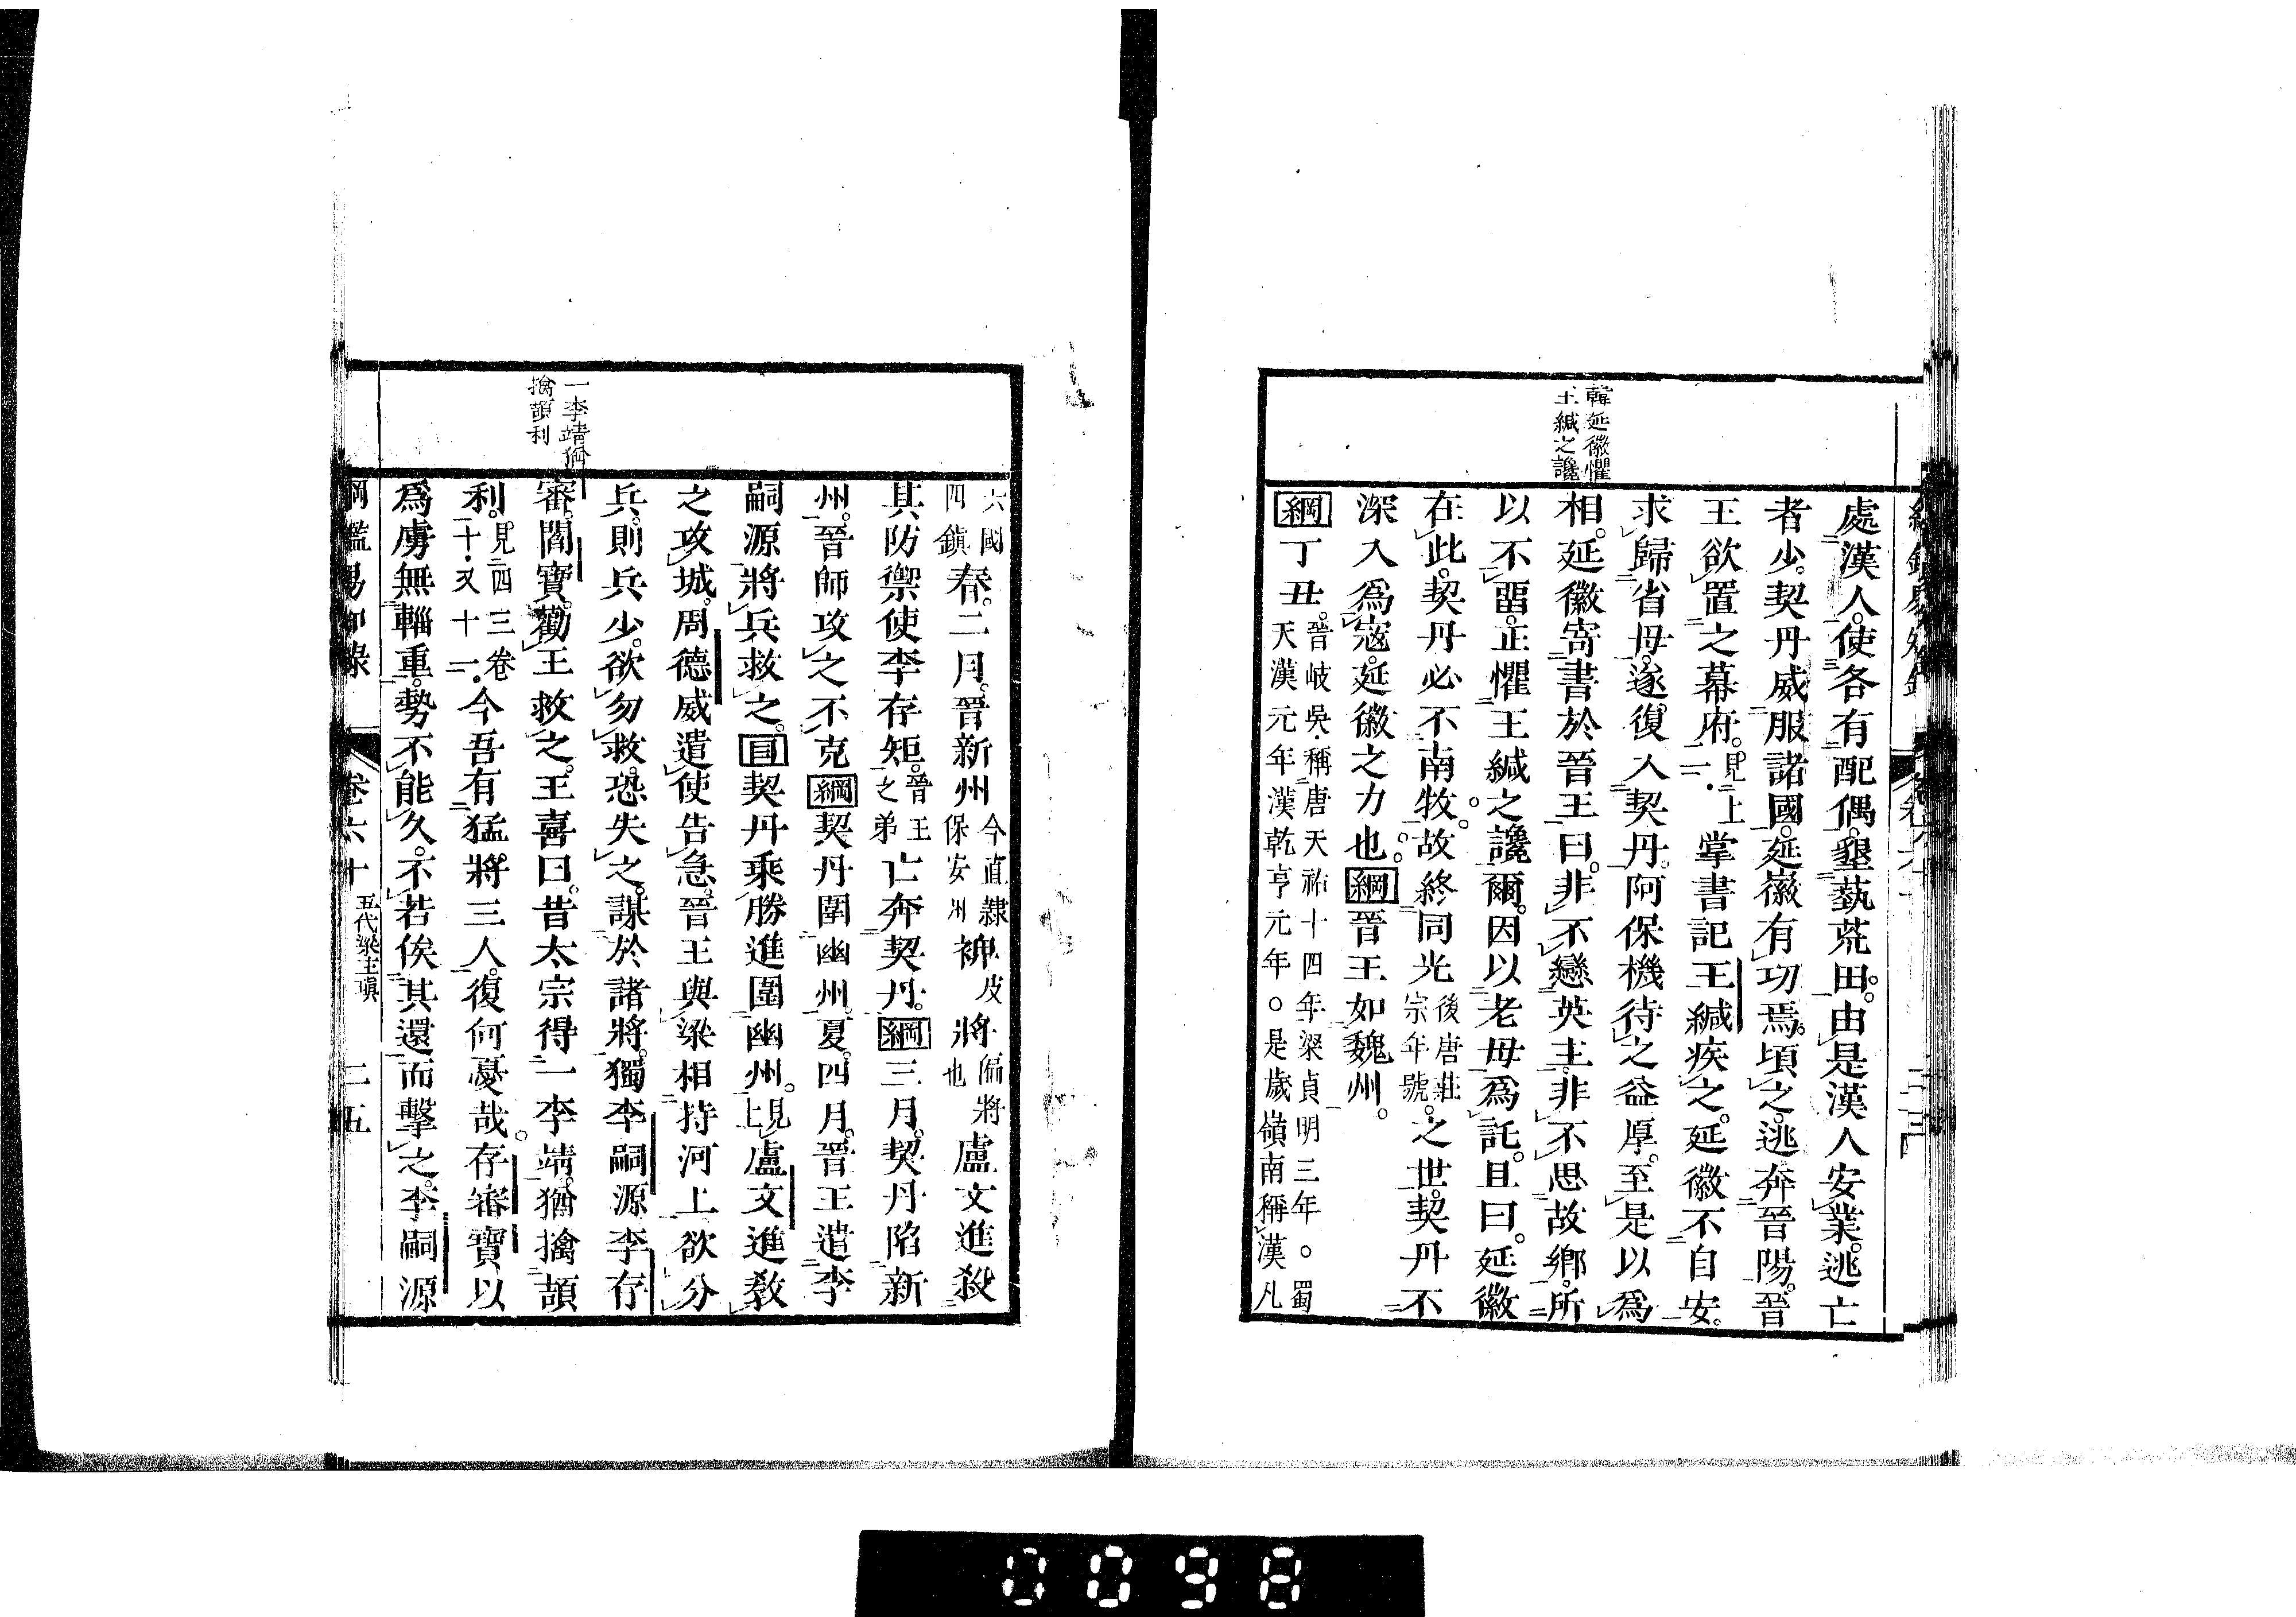 韓延徽懼
王緘之讒
處漢人。使各有配偶。墾藝荒田。由是漢人安業。逃亡
者少。契丹威服諸國。延徽有功焉。頃之。逃奔晉陽。晉
王欲置之幕府。見上二。掌書記王緘疾之。延徽不自安。
求歸省母。遂復入契丹。阿保機待之益厚。至是以爲
相。延徽寄書於晉王曰。非不戀英主。非不思故鄉。所
以不畱。正懼王緘之讒爾。因以老母爲託。且曰。延徽
在此。契丹必不南牧。故終同光後唐莊宗年號。之世。契丹不
深入爲寇。延徽之力也。綱晉王如魏州。
綱丁丑。晉岐吳稱唐天祐十四年梁貞明三年。蜀天漢元年漢乾亨元年。是歲嶺南稱漢凡
一李靖猶
擒頡利
六國四鎮春。二月。晉新州今直隸保安州裨皮將偏將也盧文進殺
其防禦使李存矩。晉王之弟亡奔契丹。綱三月。契丹陷新
州。晉師攻之不克綱契丹圍幽州。夏。四月。晉王遣李
嗣源將兵救之。目契丹乘勝進圍幽州。見上盧文進教
之攻城。周德威遣使告急。晉王與梁相持河上欲分
兵。則兵少。欲勿救。恐失之。謀於諸將。獨李嗣源李存
審。閻寶。勸王救之。王喜曰。昔太宗得一李靖。猶擒頡
利。見四三卷十又十一。今吾有猛將三人。復何憂哉。存審寶以
爲虜無輜重。勢不能久。不若俟其還而擊之。李嗣源
綱鑑易知錄
卷六十
五代梁主瑱
二五
0098